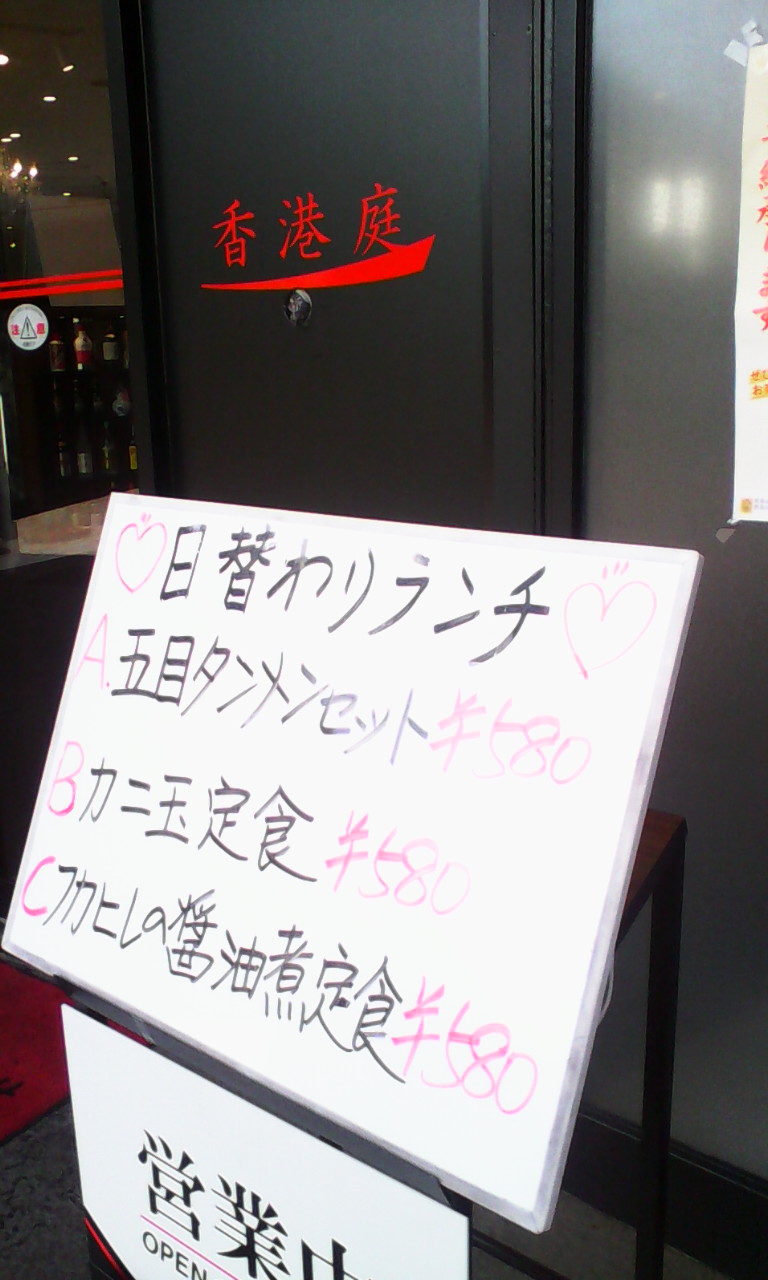 香港庭
注意
日替わりランチ
A.五目タンメンセット¥580
Bカニ玉定食¥580
Cフカヒレの醤油煮定食¥580
営業中
OPEN